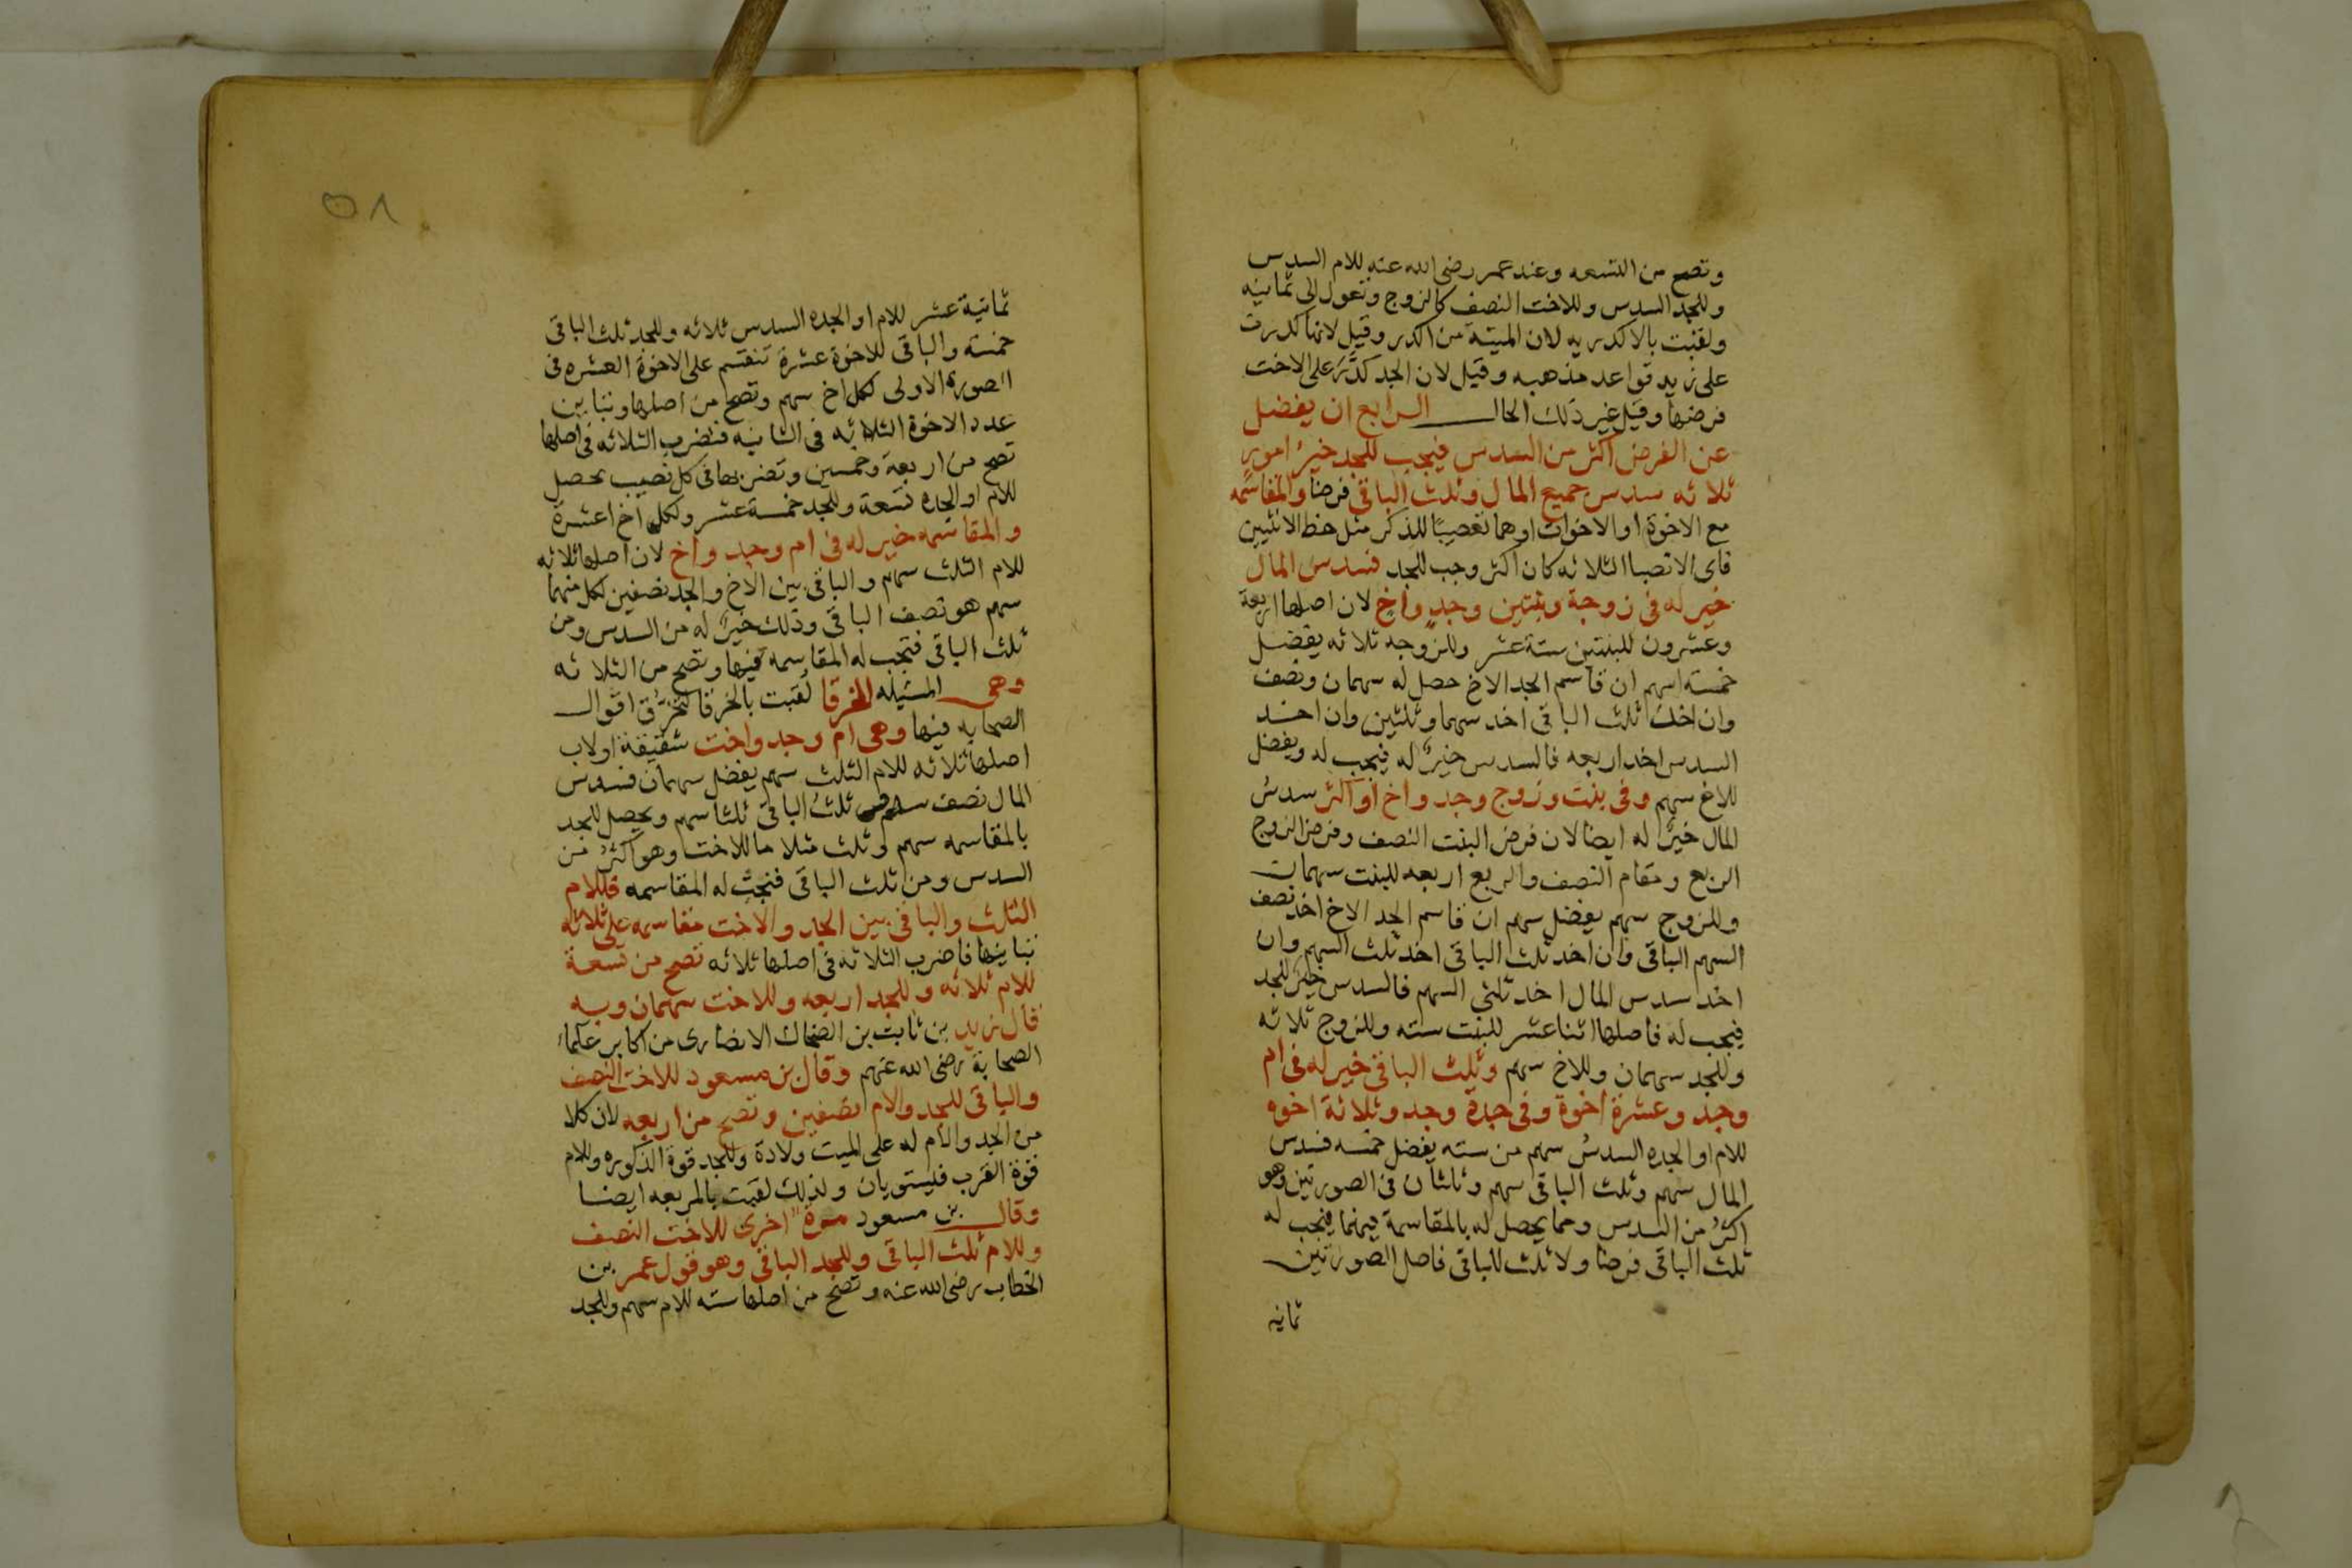 وتصح من التسعه وعند عمر رضى الله عنه للام السدس
وللجد السدس وللاخت النصف كالزوج وتعول الى ثمانيه
ولقبت بالاكدريه لان الميته من اكدر وقيل لانها كدرت
على زيد قواعد مذهبه وقيل لان الجد كدَّر على الاخت
فرضها وقيل غير ذلك الحال الرابع ان يفضل
عن الفرض اكثر من السدس فيجب للجد خير امور
ثلاثه سدس جميع المال وثلث الباقى فرضا والمقاسمه
مع الاخوة او الاخوات اوهما تعصيبًا للذكر مثل حظ الانثيين
فاى الانصبا الثلاثه كان اكثر وجب للجد فسدس المال
خير له فى زوجة وبنتين وجدٍ واخٍ لان اصلها اربعة
وعشرون للبنتين ستة عشر وللزوجه ثلاثه يفضل
خمسة اسهم ان قاسم الجد الاخ حصل له سهمان ونصف
وان اخذ ثلث الباقى اخد سهما وثلثين وان اخد
السدس اخد اربعه فالسدس خيرٌ له فيجب له ويفضل
للاخ سهم وفى بنت وزوج وجد واخ او اكثر سدسُ
المال خيرٌ له ايضا لان فرض البنت النصف وفرض الزوج
الربع ومقام النصف والربع اربعه للبنت سهمان
وللزوج سهم يفضل سهم ان قاسم الجد الاخ اخذ نصف
السهم الباقى وان اخد ثلث الباقى اخد ثلث السهم وان
اخد سدس المال اخد ثلثى السهم فالسدس خير للجد
فيجب له فاصلها اثنا عشر للبنت سته وللزوج ثلاثه
وللجد سهمان وللاخ سهم وثلث الباقى خير له فى ام
وجد وعشرة اخوة وفى جدة وجد وثلاثة اخوه
للام او الجده السدسُ سهم من سته يفضل خمسه فسدس
المال سهم وثلث الباقى سهم وثلثان فى الصورتين وهو
اكثرُ من السدس ومما يحصل له بالمقاسمة فيهما فيجب له
ثلث الباقى فرضا ولا ثلث للباقى فاصل الصورتين
ثمانيه
٥٨
ثمانية عشر للام او الجده السدس ثلاثه وللجد ثلث الباقى
خمسة والباقى للاخوة عشرة تنقسم على الاخوة العشره فى
الصورة الاولى لكل اخ سهم وتصح من اصلها وتباين
عدد الاخوة الثلاثه فى الثانيه فتضرب الثلاثه فى اصلها
تصح من اربعة وخمسين وتضربها فى كل نصيب يحصل
للام او الجده تسعة وللجد خمسة عشر ولكل اخ عشرة
والمقاسمه خير له فى ام وجد واخ لان اصلها ثلاثه
للام الثلث سهم والباقى بين الاخ والجد نصفين لكل منهما
سهم هو نصف الباقى وذلك خيرٌ له من السدس ومن
ثلث الباقى فتجب له المقاسمه فيها وتصح من الثلاثه
وهى المسيله الخرقا لقبت بالخرقا لتخرُّق اقوال
الصحابه فيها وهى ام وجد واخت شقيقة او لاب
اصلها ثلاثه للام الثلث سهم يفضل سهمان فسدس
المال نصف سهم وثلثُ الباقى ثلثا سهم ويحصل للجد
بالمقاسمه سهم وثلث مثلا ما للاخت وهو اكثرُ من
السدس ومن ثلث الباقى فتجب له المقاسمه فللام
الثلث والباقى بين الجد والاخت مقاسمه على ثلاثه
تباينها فاضرب الثلاثه فى اصلها ثلاثه تصح من تسعة
للام ثلاثه وللجد اربعه وللاخت سهمان وبه
قال زيد بن ثابت بن الضحاك الانصارى من اكابر علماء
الصحابة رضى الله عنهم وقال بن مسعود للاخت النصف
والباقى للجد والام نصفين وتصح من اربعه لان كلا
من الجد والام له على الميت ولادة وللجد قوة الذكوره وللام
قوة القرب فليستويان ولذلك لقبت بالمربعه ايضا
وقال بن مسعود مرة اخرى للاخت النصف
وللام ثلث الباقى وللجد الباقى وهو قول عمر بن
الخطاب رضى الله عنه وتصح من اصلها سته للام سهم وللجد